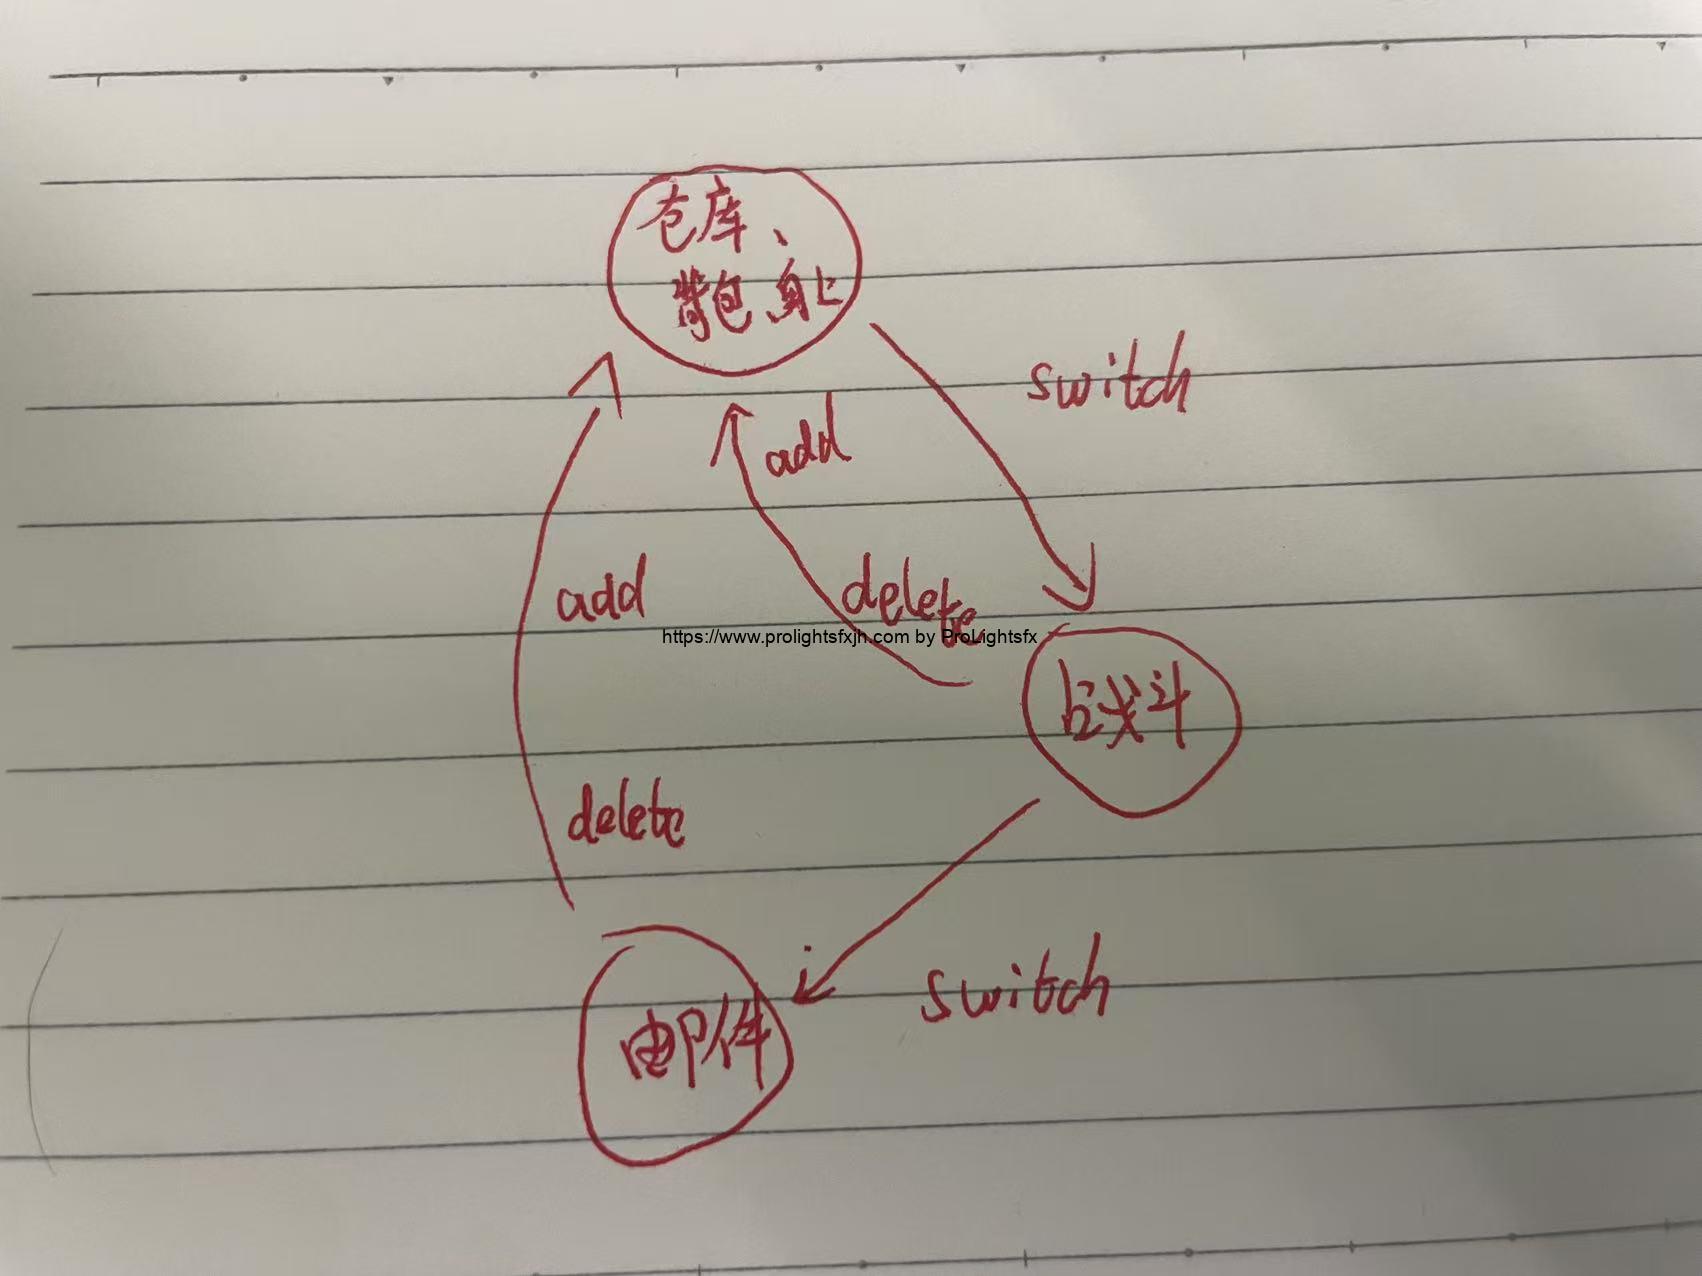 仓库、
背包、身上
switch
add
delete
add
https://www.prolightsfxjh.com by ProLightsfx
delete
switch
邮件